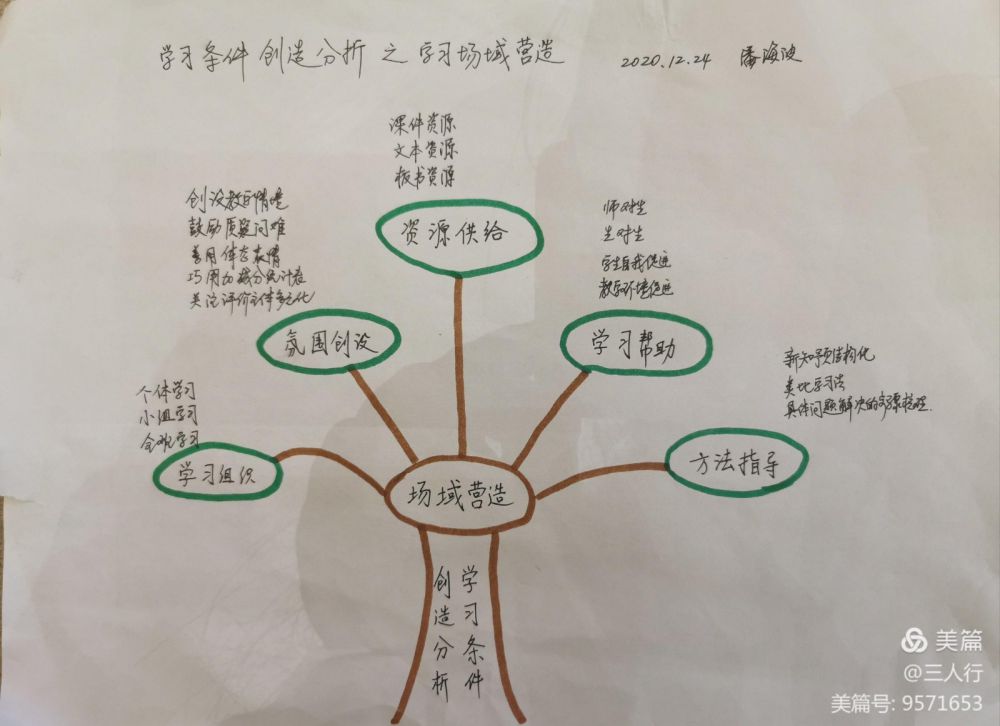 学习条件创造分析之学习场域营造 2020.12.24 潘海波
课件资源
文本资源
板书资源
资源供给
创设教学情境
鼓励质疑问难
善用体态表情
巧用加减分统计表
关注评价主体多元化
氛围创设
师对生
生对生
学生自我促进
教学环境促进
学习帮助
个体学习
小组学习
全班学习
学习组织
新知预结构化
类比学习法
具体问题解决的步骤梳理.
方法指导
场域营造
学习条件
创造分析
美篇
@三人行
美篇号: 9571653